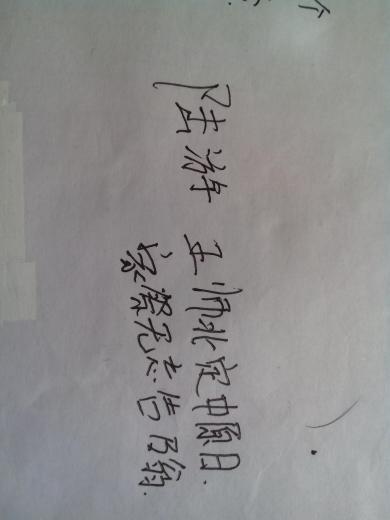 个
陆游 王师北定中原日.
家祭无忘告乃翁.